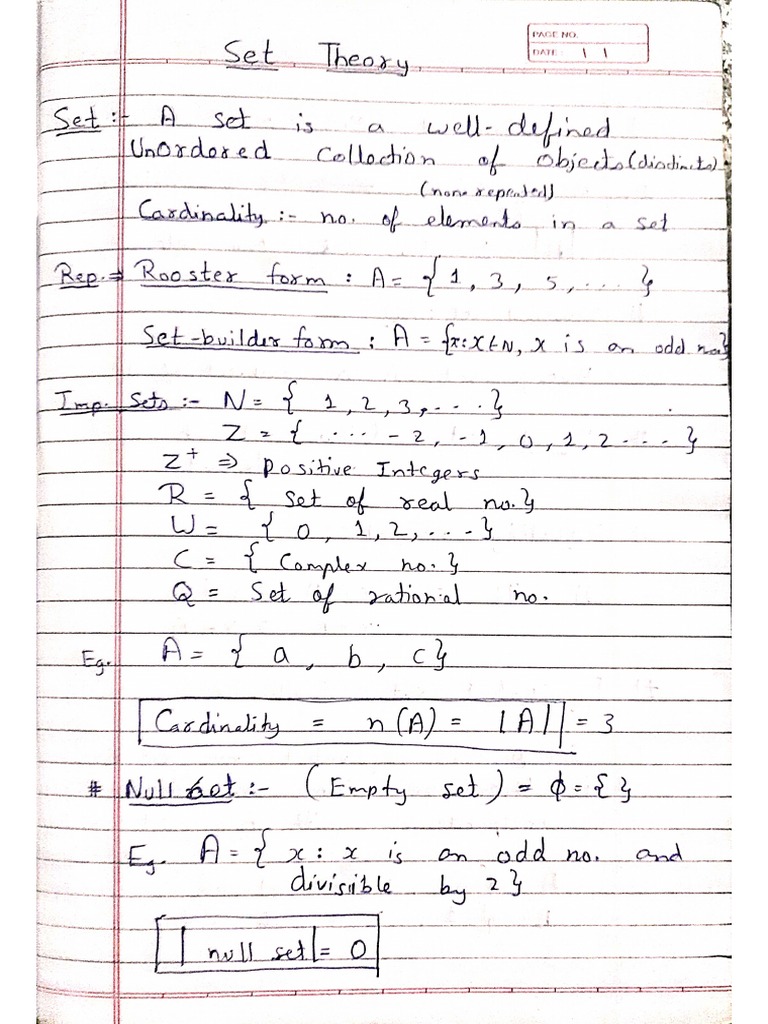 PAGE NO.
DATE: / /
Set Theory
Set :- A set is a well-defined
UnOrdered Collection of Objects (distincts)
(none repeated)
Cardinality :- no. of elements in a set
Rep. ⇒ Rooster form : A = { 1, 3, 5, ... }
Set-builder form : A = {x : x ∈ N, x is an odd no.}
Imp. Sets :- N = { 1, 2, 3, ... }
Z = { ... -2, -1, 0, 1, 2 ... }
Z⁺ ⇒ Positive Integers
R = { Set of real no. }
W = { 0, 1, 2, ... }
C = { Complex no. }
Q = Set of rational no.
Eg. A = { a, b, c }
Cardinality = n(A) = |A| = 3
# Null Set :- (Empty set) = ϕ = { }
Eg. A = { x : x is an odd no. and
divisible by 2 }
| null set | = 0